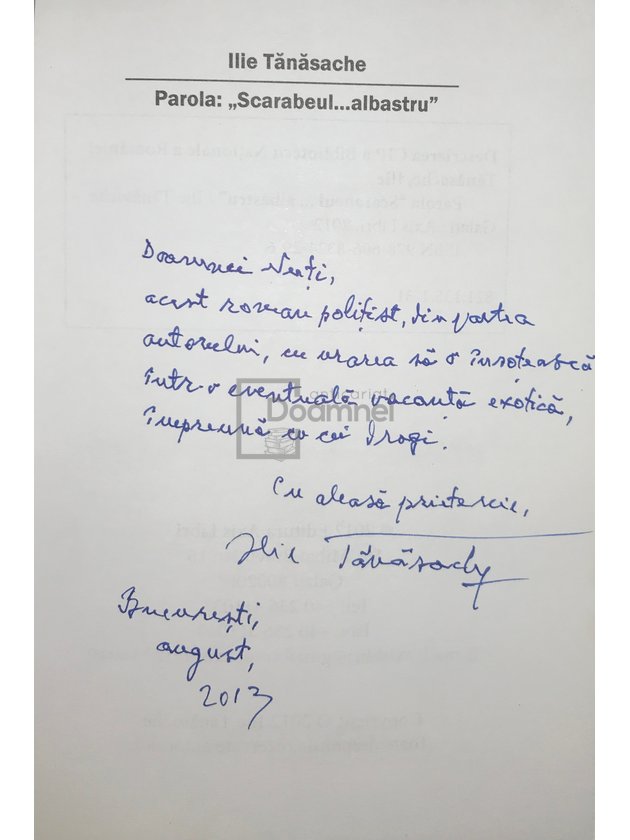 Ilie Tănăsache
Parola: „Scarabeul...albastru”
Doamnei Nuți,
acest roman polițist, din partea
autorului, cu urarea să o însoțească
într-o eventuală vacanță exotică,
împreună cu cei dragi.
Cu aleasă prietenie,
Ilie Tănăsache
București,
august,
2013
anticariat
Doamnei